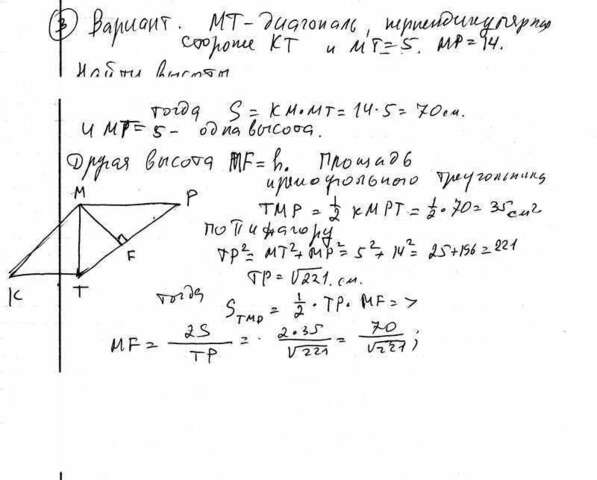 ③ Вариант. MT - диагональ, перпендикулярная
стороне KT и MT = 5. MP = 14.
Найти высоты
тогда S = KM·MT = 14·5 = 70 см.
и MT = 5 - одна высота.
Другая высота MF = h. Площадь
прямоугольного треугольника
TMP = 1/2 KMPT = 1/2 · 70 = 35 см²
по Пифагору
TP² = MT² + MP² = 5² + 14² = 25 + 196 = 221
TP = √221 см.
тогда
S TMP = 1/2 · TP · MF = >
MF = 2S / TP = · 2·35 / √221 = 70 / √221 ;
M
P
F
K
T